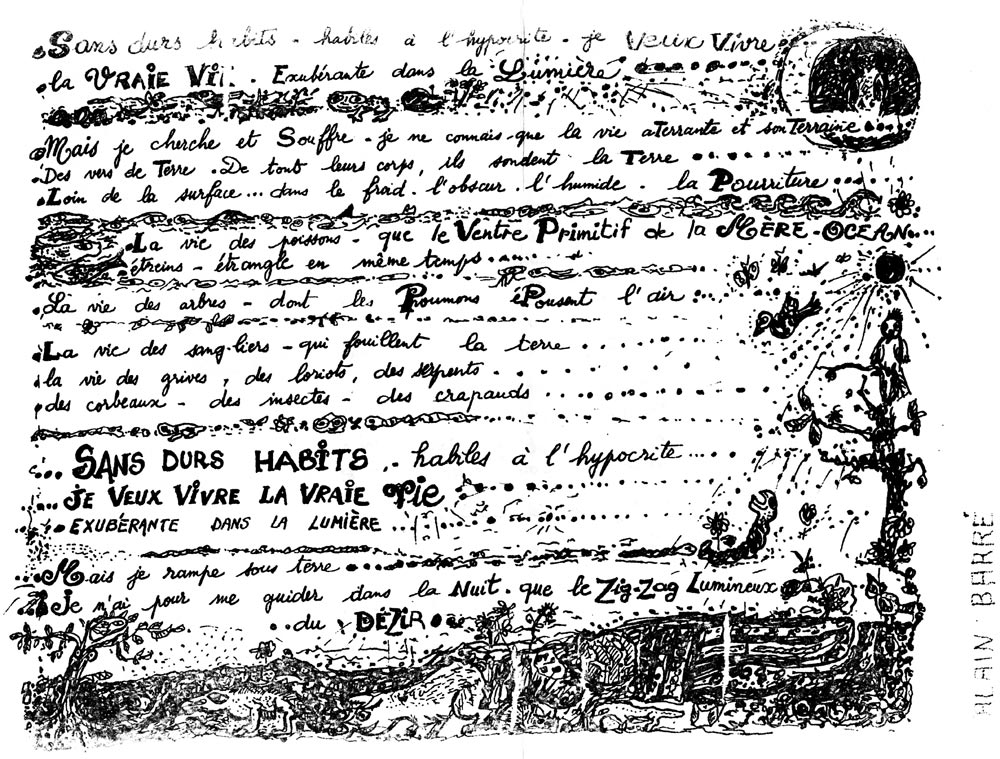 Sans durs habits - habiles à l'hypocrite - je Veux Vivre
la VRAIE Vie. Exubérante dans la Lumière
Mais je cherche et Souffre - je ne connais que la vie aTerrante et son Terraine
Des vers de Terre. De tout leurs corps, ils sondent la Terre
Loin de la surface... dans le froid. l'obscur. l'humide. la Pourriture
La vie des poissons - que le Ventre Primitif de la MÈRE-OCEAN...
étreins - étrangle en même temps
La vie des arbres - dont les Proumons éPousent l'air
La vie des sang-liers - qui fouillent la terre
la vie des grives, des loriots, des serpents
des corbeaux - des insectes - des crapauds
... SANS DURS HABITS .. habiles à l'hypocrite...
... JE VEUX VIVRE LA VRAIE Vie
EXUBÉRANTE DANS LA LUMIÈRE...
Mais je rampe sous terre
Je n'ai pour me guider dans la Nuit. que le Zig-Zag Lumineux
..du DÉZIR
ALAIN BARRÉ